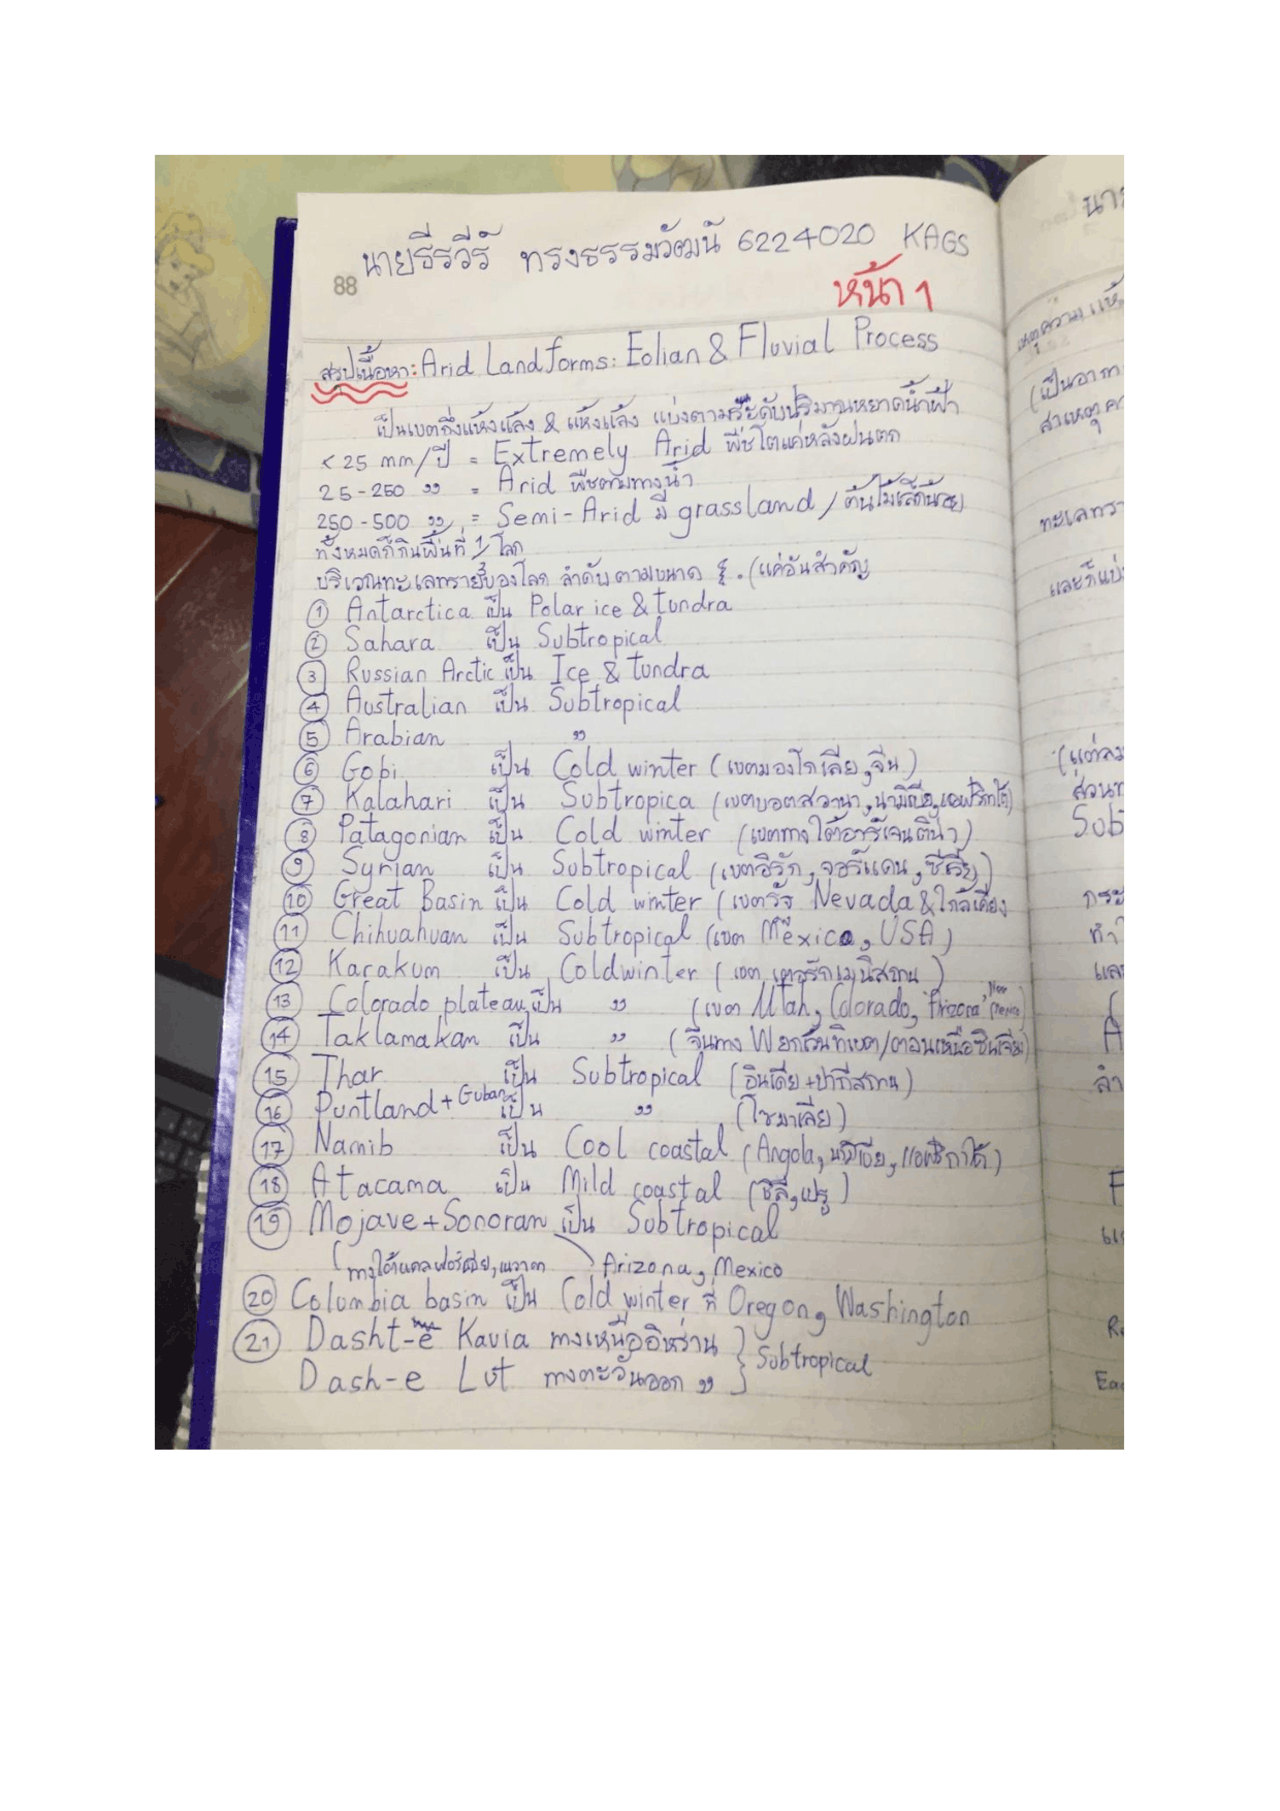 นายธีรวีร์ ทรงธรรมวัฒน์ 6224020 KAGS
88
หน้า 1
สรุปเนื้อหา: Arid Landforms: Eolian & Fluvial Process
เป็นเขตกึ่งแห้งแล้ง & แห้งแล้ง แบ่งตามระดับปริมาณหยาดน้ำฟ้า
< 25 mm/ปี = Extremely Arid พืชโตแค่หลังฝนตก
25-250 " = Arid พืชตามทางน้ำ
250-500 " = Semi-Arid มี grassland / ต้นไม้เล็กน้อย
ทั้งหมดก็กินพื้นที่ 1/3 โลก
บริเวณทะเลทรายของโลก ลำดับตามขนาด (แค่อันสำคัญ
① Antarctica เป็น Polar ice & tundra
② Sahara เป็น Subtropical
③ Russian Arctic เป็น Ice & tundra
④ Australian เป็น Subtropical
⑤ Arabian "
⑥ Gobi เป็น Cold winter (เขตมองโกเลีย, จีน)
⑦ Kalahari เป็น Subtropica (เขตบอตสวานา, นามิเบีย, แอฟริกาใต้)
⑧ Patagonian เป็น Cold winter (เขตทางใต้อาร์เจนตินา)
⑨ Syrian เป็น Subtropical (เขตอิรัก, จอร์แดน, ซีเรีย)
⑩ Great Basin เป็น Cold winter (เขตรัฐ Nevada & ใกล้เคียง
⑪ Chihuahuan เป็น Subtropical (เขต Mexico, USA)
⑫ Karakum เป็น Coldwinter (เขต เตอร์กเมนิสถาน)
⑬ Colorado plateau เป็น " (เขต Utah, Colorado, Arizona, New Mexico)
⑭ Taklamakan เป็น " (จีนทาง W ยกเว้นทิเบต/ตอนเหนือซินเจียง)
⑮ Thar เป็น Subtropical (อินเดีย + ปากีสถาน)
⑯ Puntland + Guban เป็น " (โซมาเลีย)
⑰ Namib เป็น Cool coastal (Angola, นามิเบีย, แอฟริกาใต้)
⑱ Atacama เป็น Mild coastal (ชิลี, เปรู)
⑲ Mojave + Sonoran เป็น Subtropical
ทางใต้แคลิฟอร์เนีย, เนวาดา Arizona, Mexico
⑳ Columbia basin เป็น Cold winter ที่ Oregon, Washington
㉑ Dasht-e Kavia ทางเหนืออิหร่าน } Subtropical
Dash-e Lut ทางตะวันออก "
นาย
(เป็นอากา
ทะเลทรา
และก็แบ่ง
(แต่ลม
ส่วนท
Sub
กระ
ทำ
และ
A
ลำ
F
แ
R
Ea